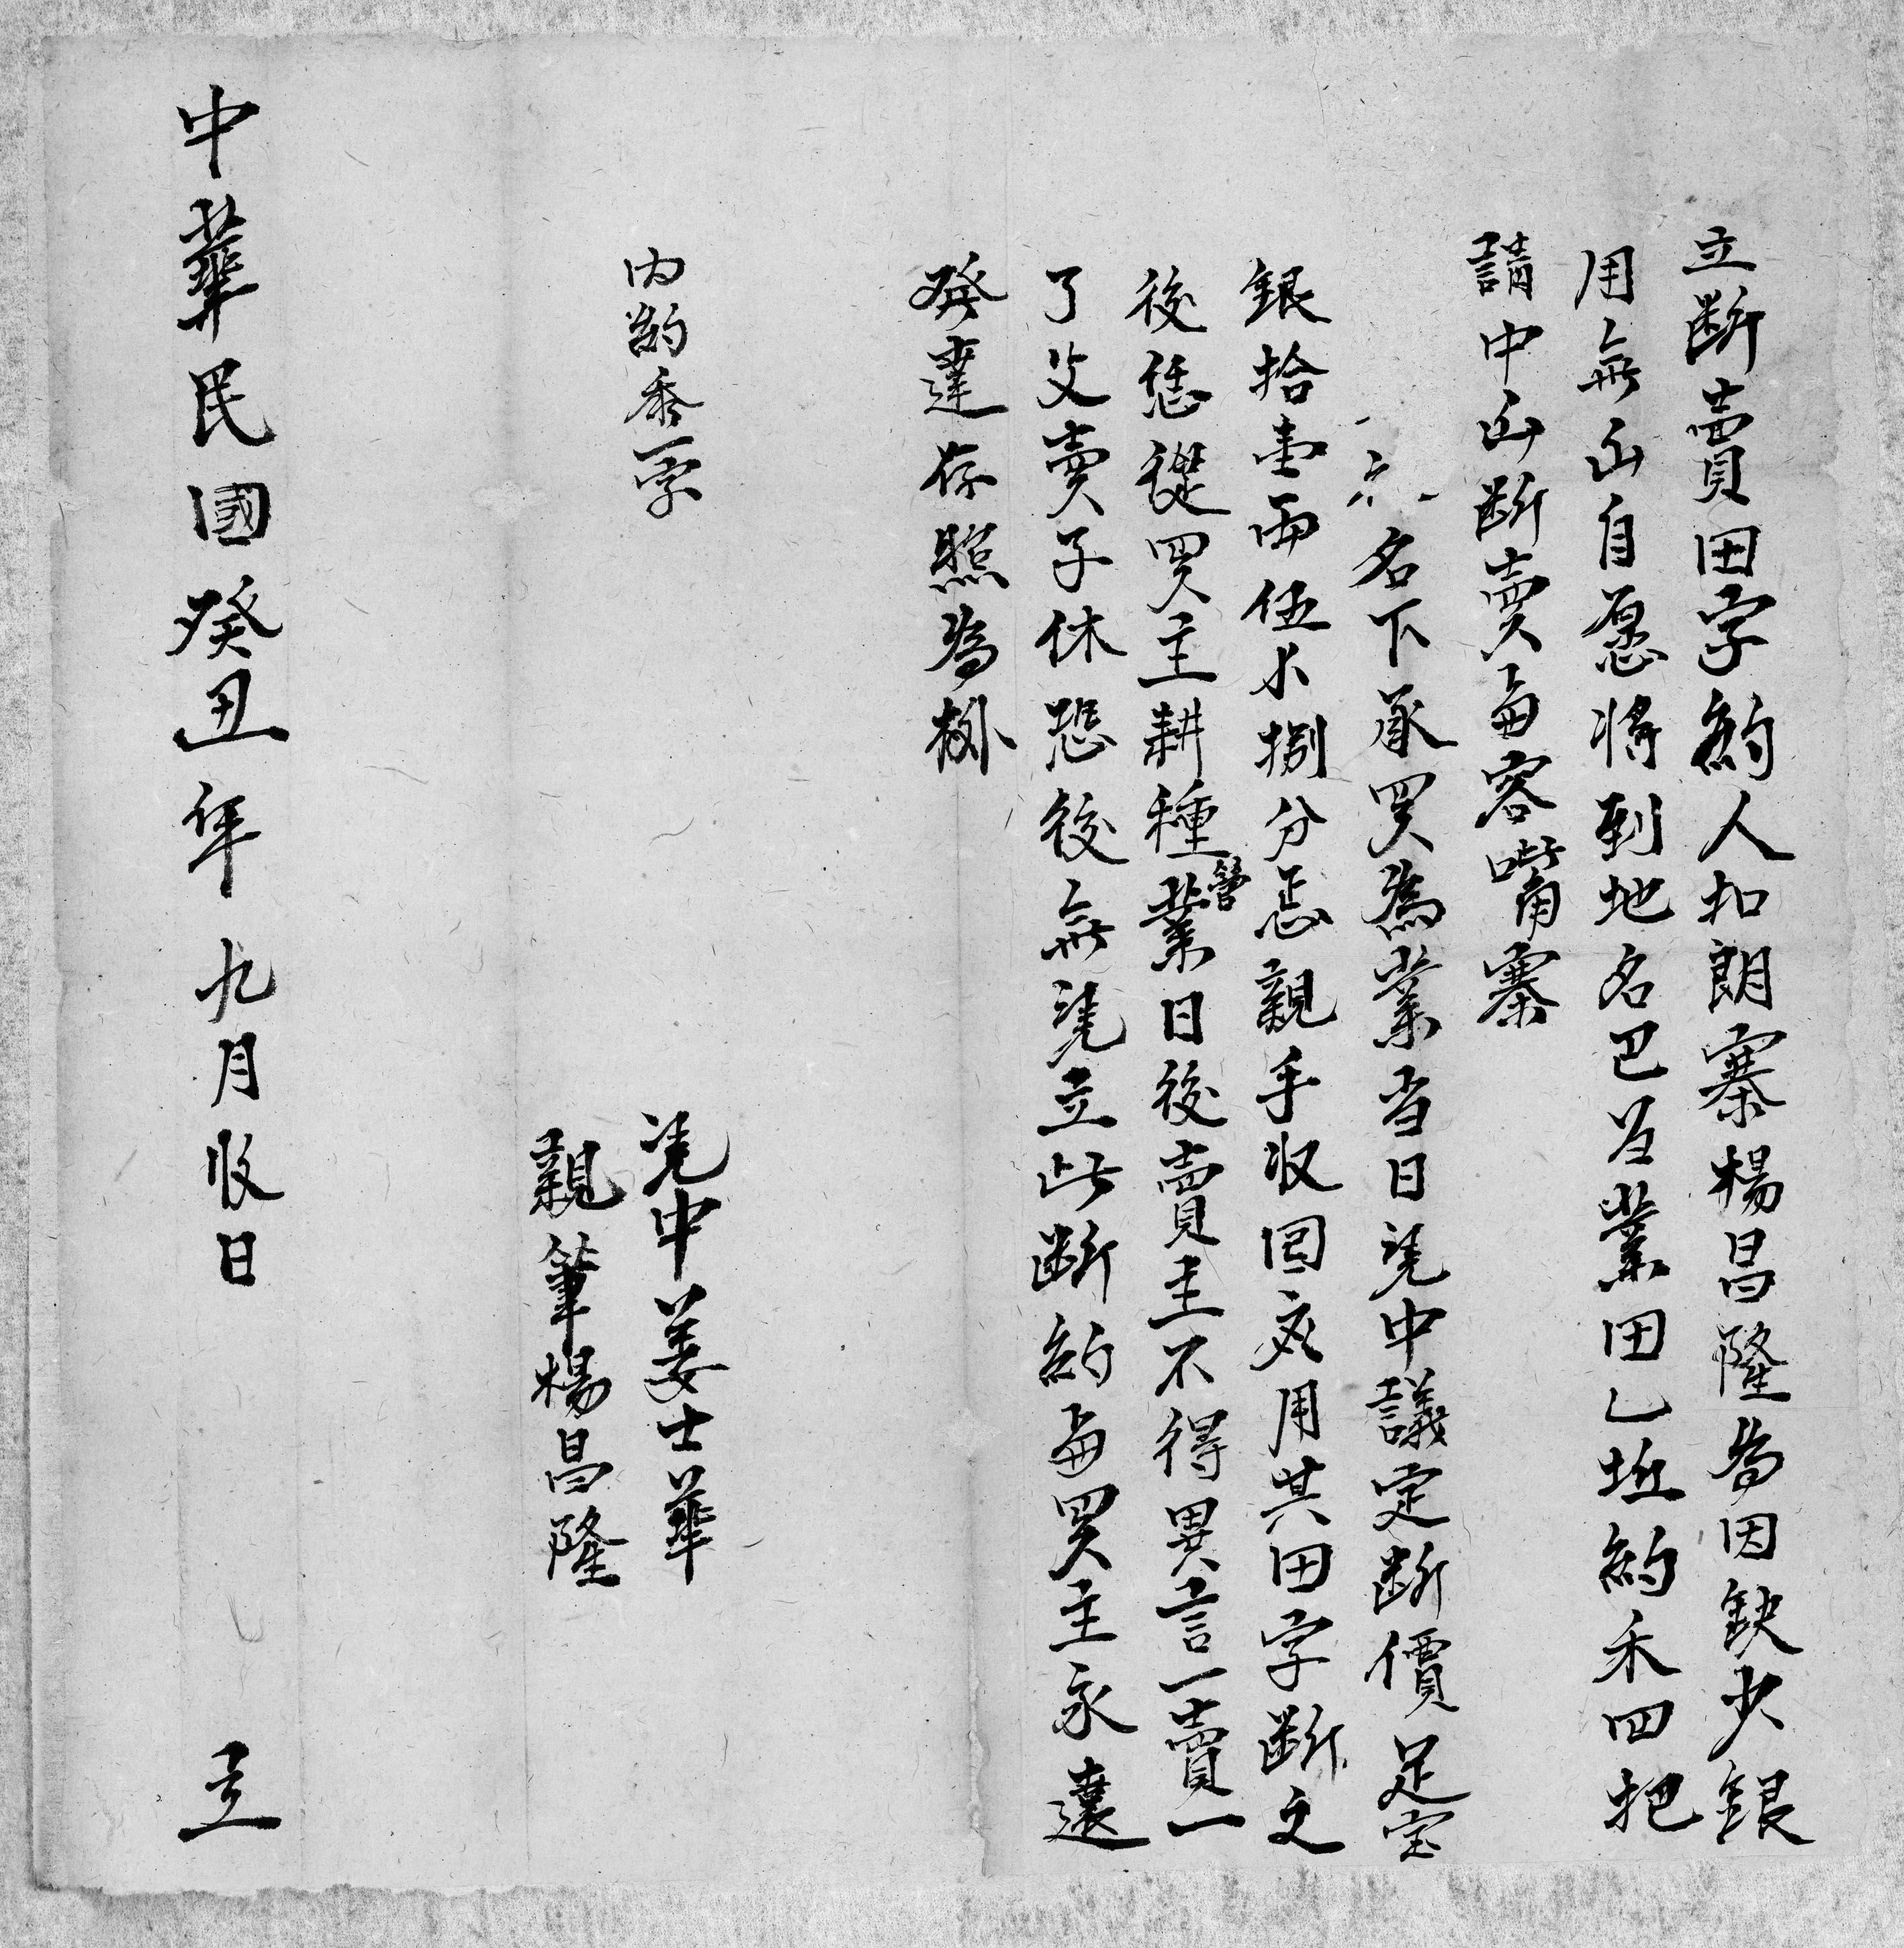 立断賣田字約人扣朗寨楊昌隆為因缺少銀
用無出自愿將到地名巴业田乙坵約禾四把
請中出断賣与容嘴寨
名下承買為業当日凭中議定断價足宝
銀拾壹両伍小捌分忘親手収回应用其田字断之
後恁從買主耕種管業日後賣主不得異言一賣一
了父賣子休恐後無凭立此断約与買主永遠
發達存照為
内約添一字
凭中姜士華
親筆楊昌隆
中華民國癸丑年九月收日 立